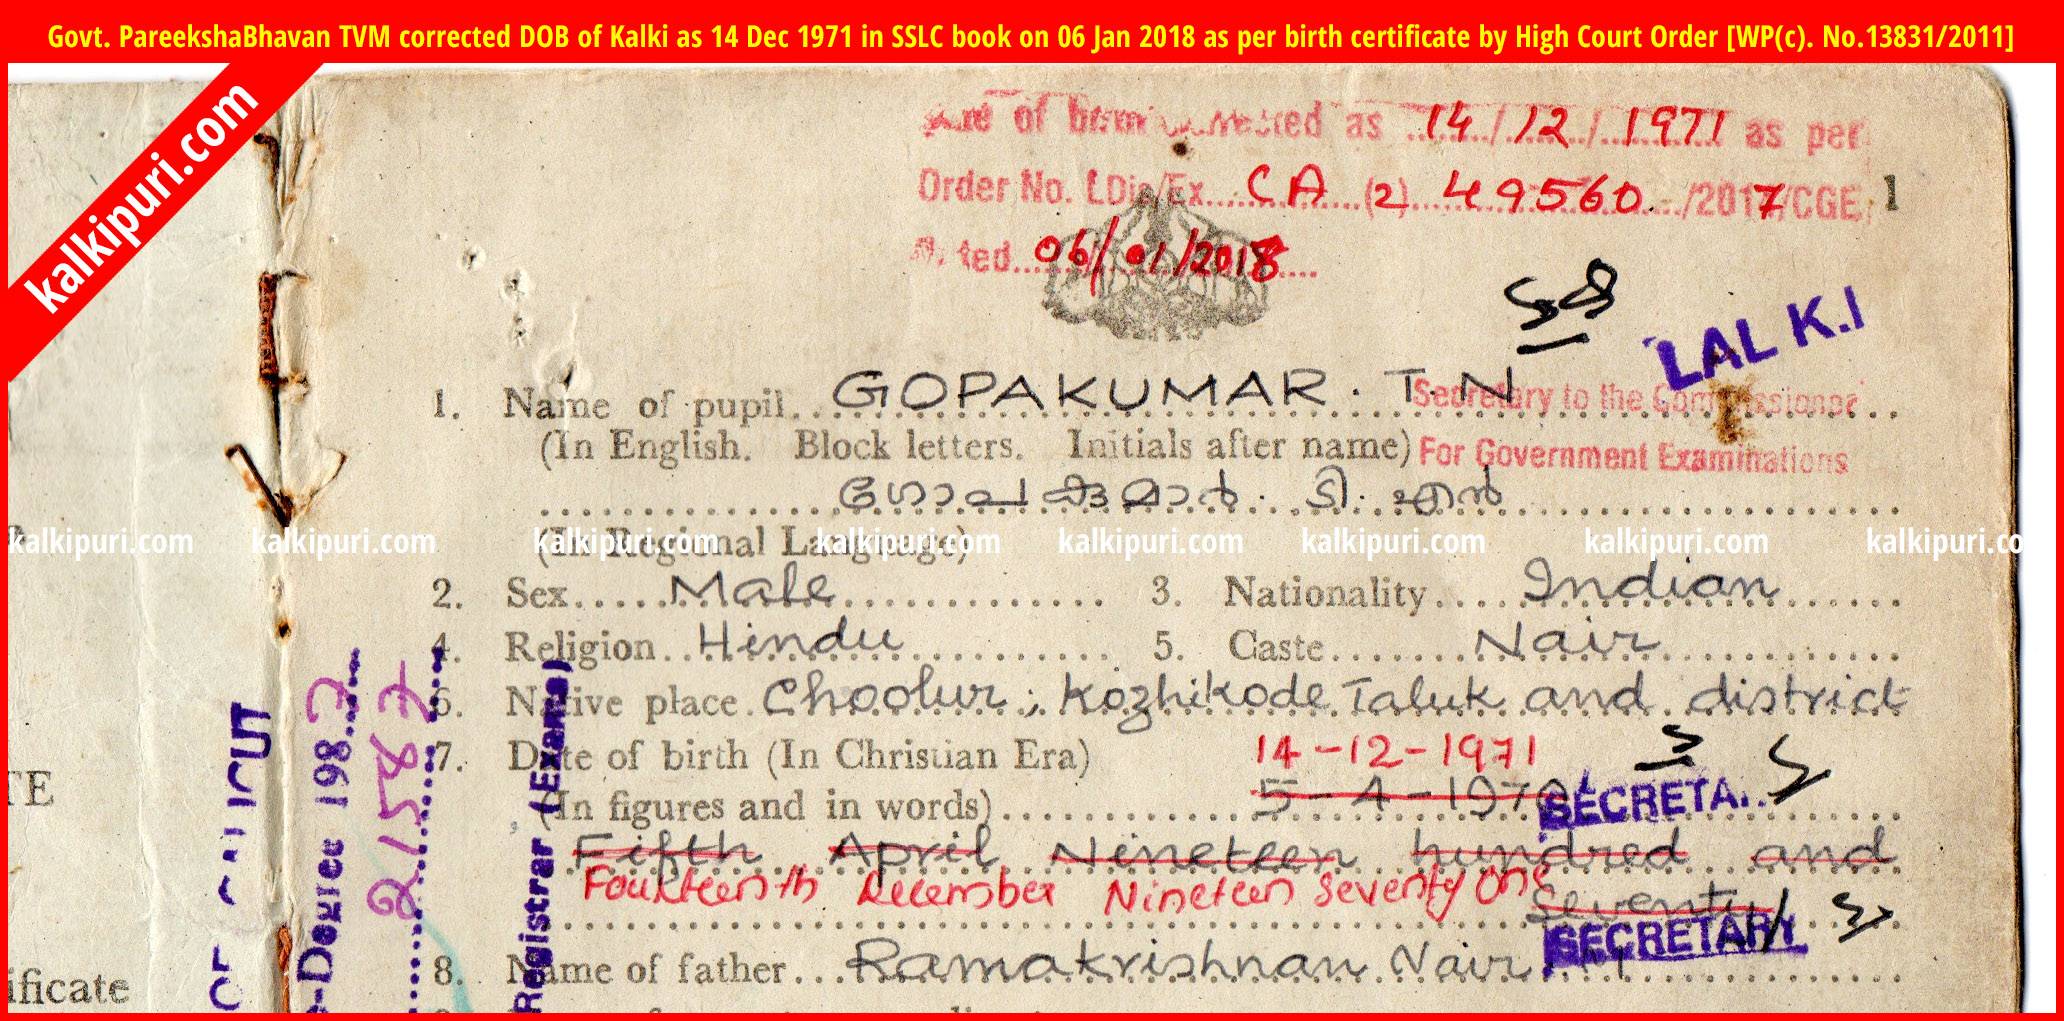 Govt. PareekshaBhavan TVM corrected DOB of Kalki as 14 Dec 1971 in SSLC book on 06 Jan 2018 as per birth certificate by High Court Order [WP(c). No.13831/2011]
kalkipuri.com
of birth corrected as 14/12/1971 as per
Order No. CA (2) 49560 /2017/CGE,
1
06/01/2018
LAL K.I
Secretary to the Commissioner
For Government Examinations
1. Name of pupil GOPAKUMAR. T N
(In English. Block letters. Initials after name)
ഗോപകുമാർ. ടി. എൻ
(In Regional Language)
kalkipuri.com kalkipuri.com kalkipuri.com kalkipuri.com kalkipuri.com kalkipuri.com kalkipuri.com kalkipuri.co
2. Sex Male 3. Nationality Indian
4. Religion Hindu 5. Caste Nair
6. Native place Choolur, Kozhikode Taluk and district
7. Date of birth (In Christian Era) 14-12-1971
(In figures and in words) 5-4-1970
SECRETA
Fifth April Nineteen hundred and
Fourteenth December Nineteen Seventy One
Seventy
SECRETARY
8. Name of father Ramakrishnan Nair
TE
ificate
-Degree 198 7
21587
Registrar (Exams)